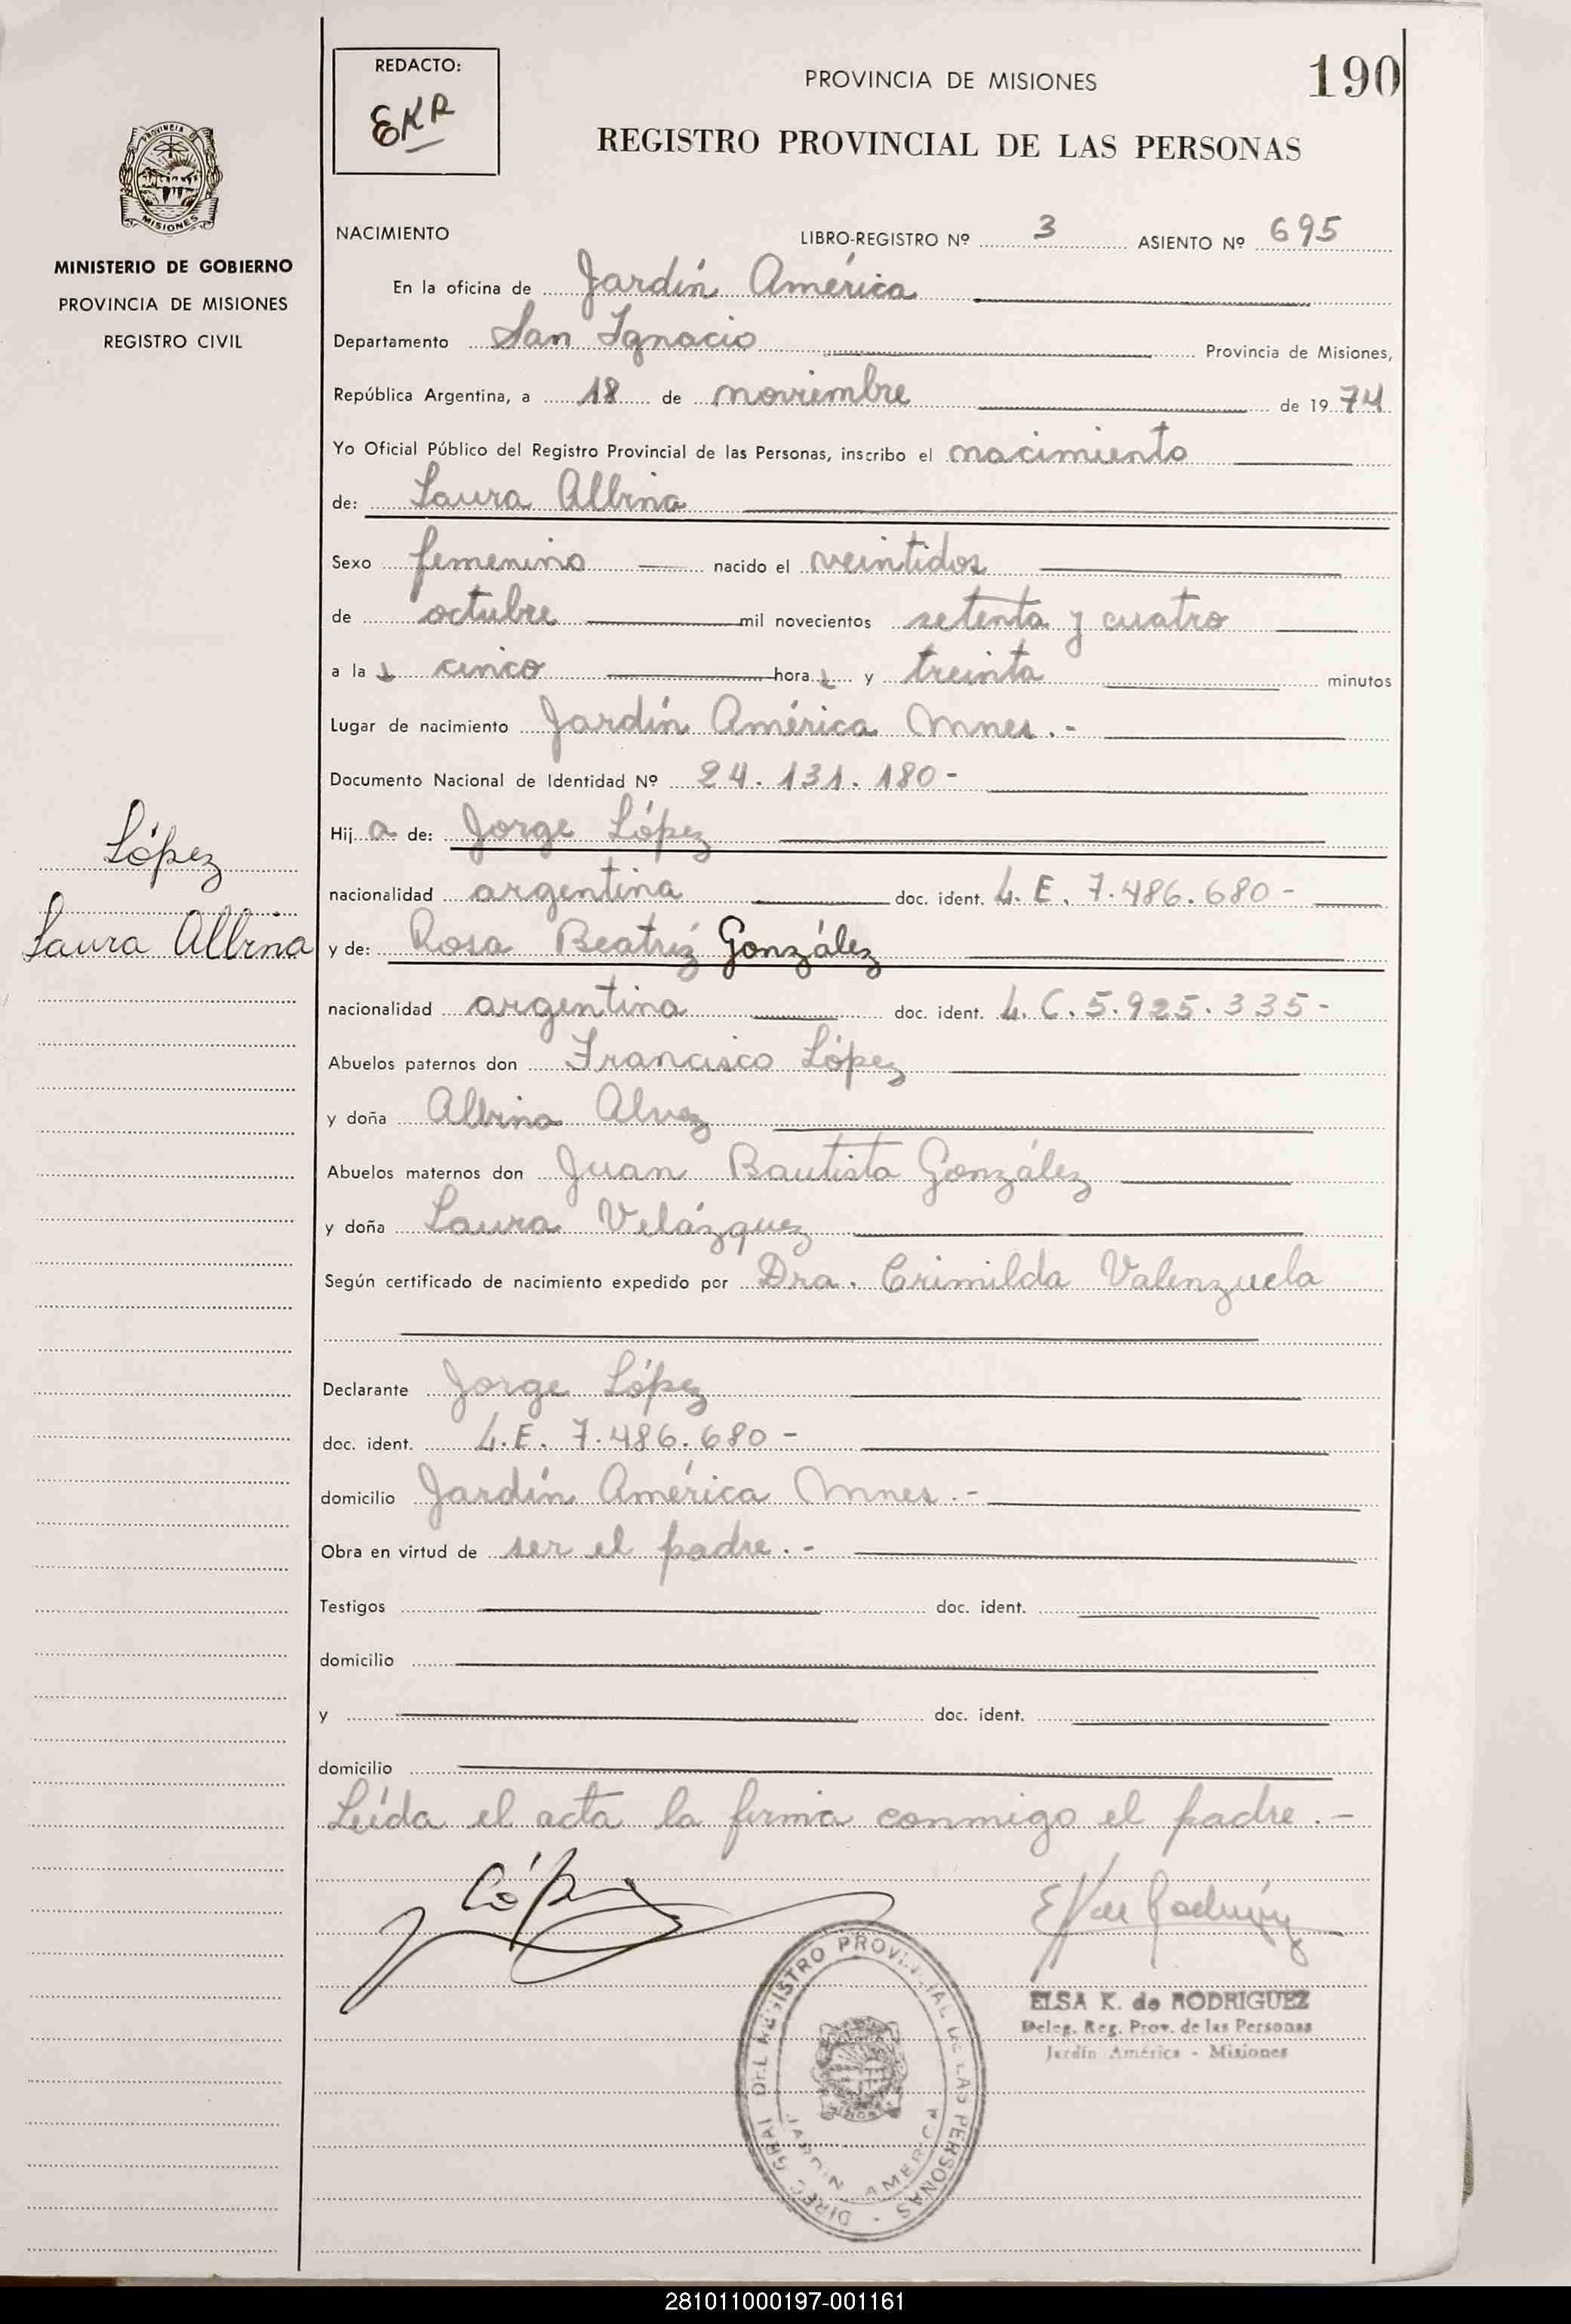 REDACTO:
EKR
PROVINCIA DE MISIONES
190
REGISTRO PROVINCIAL DE LAS PERSONAS
PROVINCIA DE
MISIONES
MINISTERIO DE GOBIERNO
PROVINCIA DE MISIONES
REGISTRO CIVIL
NACIMIENTO LIBRO-REGISTRO Nº 3 ASIENTO Nº 695
En la oficina de Jardín América
Departamento San Ignacio Provincia de Misiones,
República Argentina, a 18 de noviembre de 1974
Yo Oficial Público del Registro Provincial de las Personas, inscribo el nacimiento
de: Laura Albina
Sexo femenino nacido el veintidos
de octubre mil novecientos setenta y cuatro
a la s cinco hora s y treinta minutos
Lugar de nacimiento Jardín América Mnes.-
Documento Nacional de Identidad Nº 24.131.180-
Hij a de: Jorge López
López
nacionalidad argentina doc. ident. L.E. 7.486.680-
Laura Albina
y de: Rosa Beatriz González
nacionalidad argentina doc. ident. L.C. 5.925.335-
Abuelos paternos don Francisco López
y doña Albina Alvez
Abuelos maternos don Juan Bautista González
y doña Laura Velázquez
Según certificado de nacimiento expedido por Dra. Crimilda Valenzuela
Declarante Jorge López
doc. ident. L.E. 7.486.680-
domicilio Jardín América Mnes.-
Obra en virtud de ser el padre.-
Testigos doc. ident.
domicilio
y doc. ident.
domicilio
Leída el acta la firma conmigo el padre.-
López
ELSA K. de RODRIGUEZ
Deleg. Reg. Prov. de las Personas
Jardín América - Misiones
DIREC. GRAL. DEL REGISTRO PROVINCIAL DE LAS PERSONAS
JARDIN AMERICA
281011000197-001161